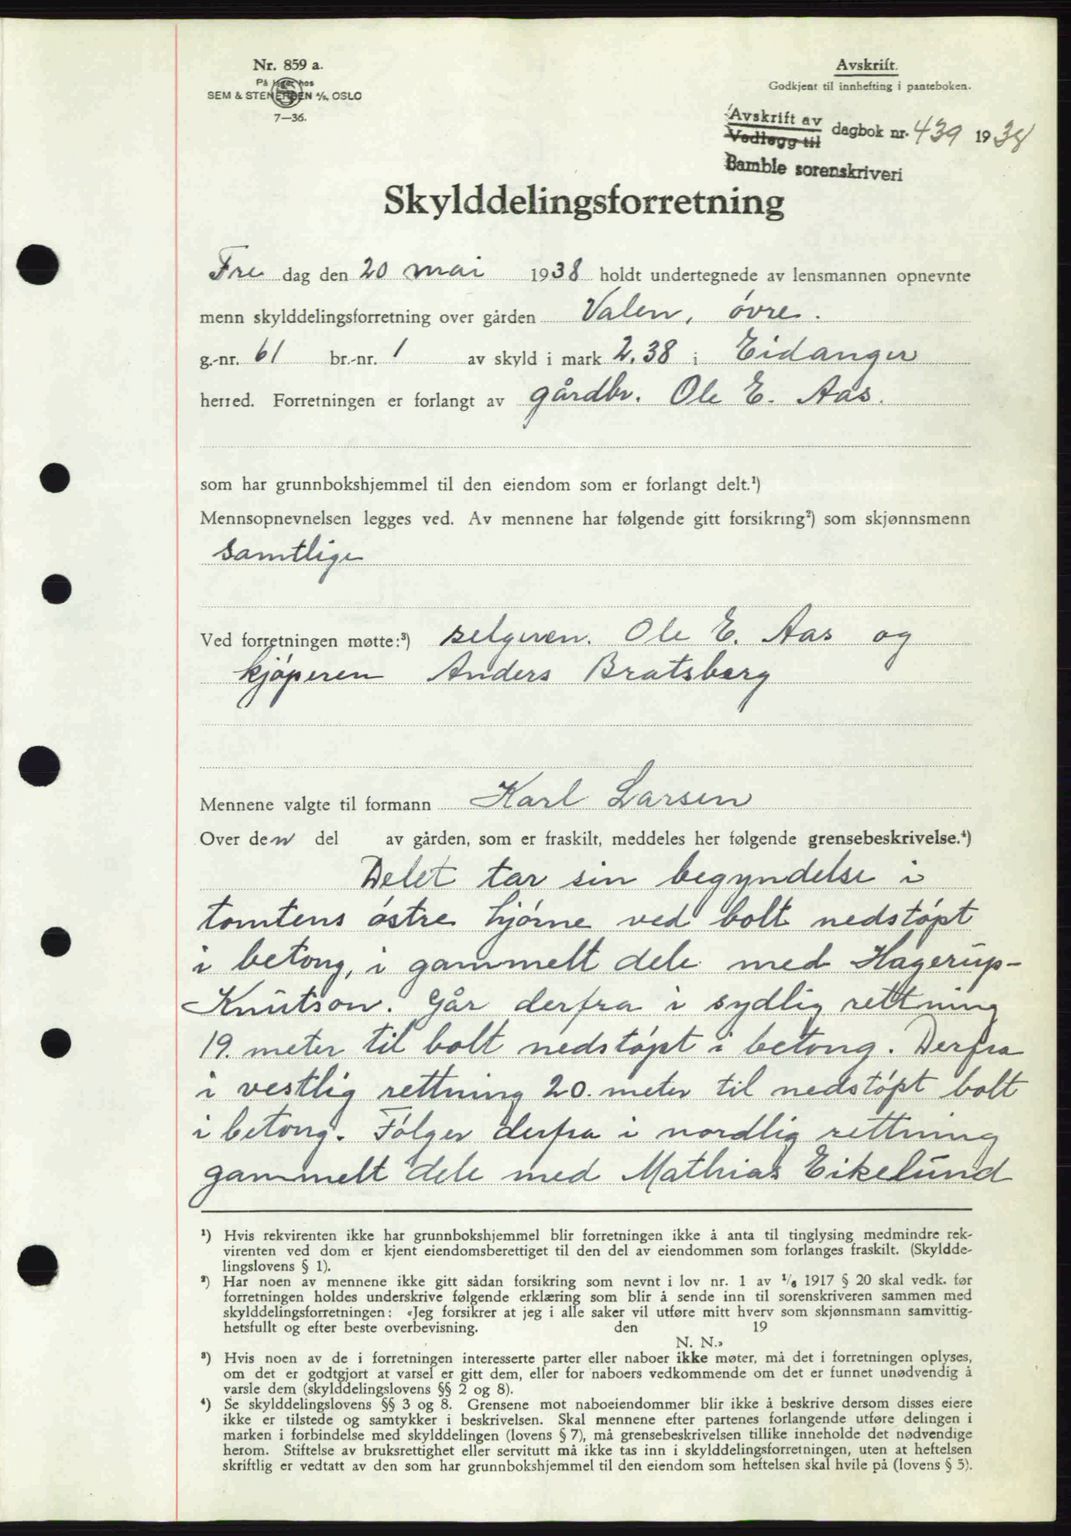 Nr. 859 a.
På lager hos
SEM & STENERSEN A/S, OSLO
7—36.
Avskrift.
Godkjent til innhefting i panteboken.
Avskrift av
Vedlegg til
dagbok nr. 439 1938
Bamble sorenskriveri
Skylddelingsforretning
Fre dag den 20 mai 1938 holdt undertegnede av lensmannen opnevnte
menn skylddelingsforretning over gården Valen, övre.
g.-nr. 61 br.-nr. 1 av skyld i mark 2,38 i Eidanger
herred. Forretningen er forlangt av gårdbr. Ole E. Aas.
som har grunnbokshjemmel til den eiendom som er forlangt delt.¹)
Mennsopnevnelsen legges ved. Av mennene har følgende gitt forsikring²) som skjønnsmenn
samtlige
Ved forretningen møtte:³) selgeren. Ole E. Aas og
kjöperen Anders Bratsberg
Mennene valgte til formann Karl Larsen
Over den del av gården, som er fraskilt, meddeles her følgende grensebeskrivelse.⁴)
Delet tar sin begyndelse i
tomtens östre hjörne ved bolt nedstöpt
i betong, i gammelt dele med Hagerup-
Knutson. Går derfra i sydlig rettning
19. meter til bolt nedstöpt i betong. Derfra
i vestlig rettning 20. meter til nedstöpt bolt
i betong. Fölger derfra i nordlig rettning
gammelt dele med Mathias Eikelund
¹) Hvis rekvirenten ikke har grunnbokshjemmel blir forretningen ikke å anta til tinglysing medmindre rek-
virenten ved dom er kjent eiendomsberettiget til den del av eiendommen som forlanges fraskilt. (Skyldde-
lingslovens § 1).
²) Har noen av mennene ikke gitt sådan forsikring som nevnt i lov nr. 1 av 1/6 1917 § 20 skal vedk. før
forretningen holdes underskrive følgende erklæring som blir å sende inn til sorenskriveren sammen med
skylddelingsforretningen: «Jeg forsikrer at jeg i alle saker vil utføre mitt hverv som skjønnsmann samvittig-
hetsfullt og efter beste overbevisning. den 19
N. N.»
³) Hvis noen av de i forretningen interesserte parter eller naboer ikke møter, må det i forretningen oplyses,
om det er godtgjort at varsel er gitt dem, eller for naboers vedkommende om det er funnet unødvendig å
varsle dem (skylddelingslovens §§ 2 og 8).
⁴) Se skylddelingslovens §§ 3 og 8. Grensene mot naboeiendommer blir ikke å beskrive dersom disses eiere
ikke er tilstede og samtykker i beskrivelsen. Skal mennene efter partenes forlangende utføre delingen i
marken i forbindelse med skylddelingen (lovens § 7), må grensebeskrivelsen tillike inneholde det nødvendige
herom. Stiftelse av bruksrettighet eller servitutt må ikke tas inn i skylddelingsforretningen, uten at heftelsen
skriftlig er vedtatt av den som har grunnbokshjemmel til den eiendom som heftelsen skal hvile på (lovens § 5).